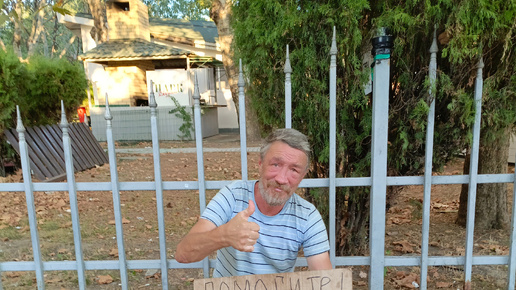 ПОМОГИТЕ!